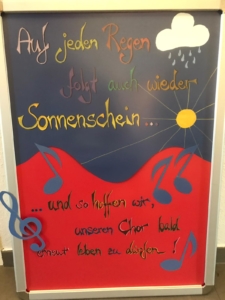 Auf jeden Regen
folgt auch wieder
Sonnenschein...
... und so hoffen wir,
unseren Chor bald
erneut leben zu dürfen!